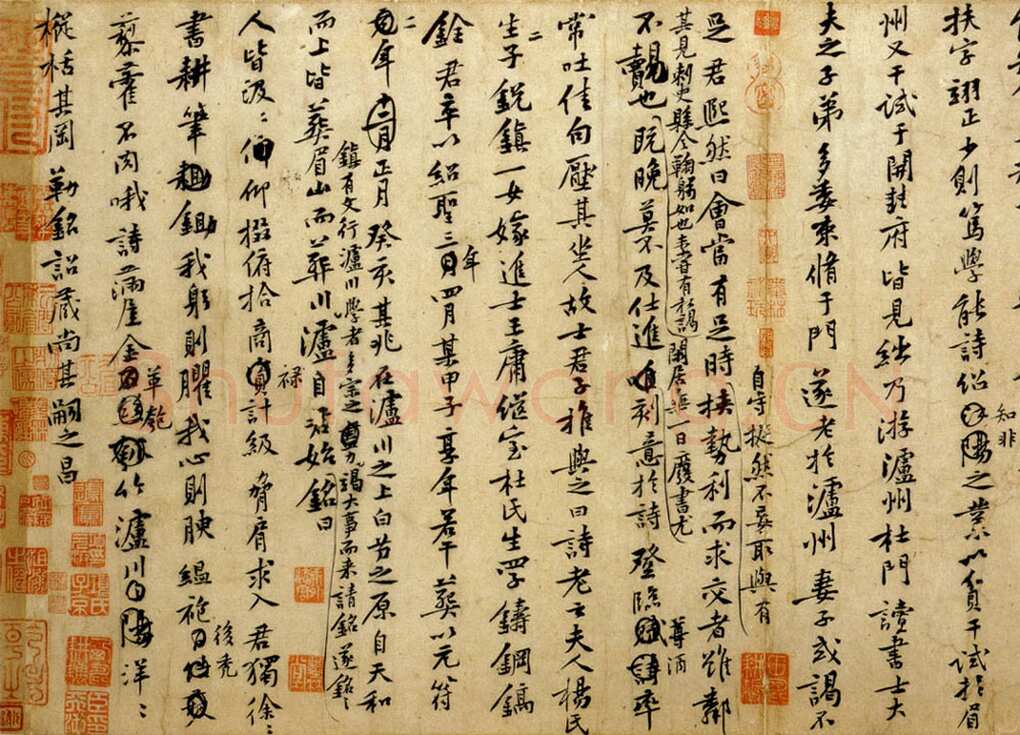 扶字翊正少則篤學能詩
之業以貧干試於眉
知非
州又干試于開封府皆見絀乃游瀘州杜門讀書士大
夫之子弟多委束脩于門遂老於瀘州妻子或謁不
足君熙然曰會當有足時挾勢利而求交者雖鄰
自守挺然不妄取與有
其見刺史縣令鞠躬如也
閑居無一日廢書尤
不覿也既晚莫不及仕進刻意於詩登臨
尊酒
率
常吐佳句壓其坐人故士君子雅與之曰詩老云夫人楊氏
生二子銳鎮一女嫁進士王庸繼室杜氏生四子鑄鋼鎬
銓君卒以紹聖三年四月某甲子享年若干葬以元符
二年
正月癸亥其兆在瀘川之上白芀之原自天和
鎮有文行瀘川學者多宗之
竭大事而來請銘遂銘
而上皆葬眉山而葬瀘川自
始銘曰
祿
人皆汲汲俯仰掇拾商
計級脅肩求入君獨徐徐
書耕筆鋤我躬則臞我心則腴縕袍
後禿
藜藿不肉哦詩滿屋金
革匏
瀘川
洋洋
樅栝其岡勒銘詔藏尚其嗣之昌
shufawang.CN